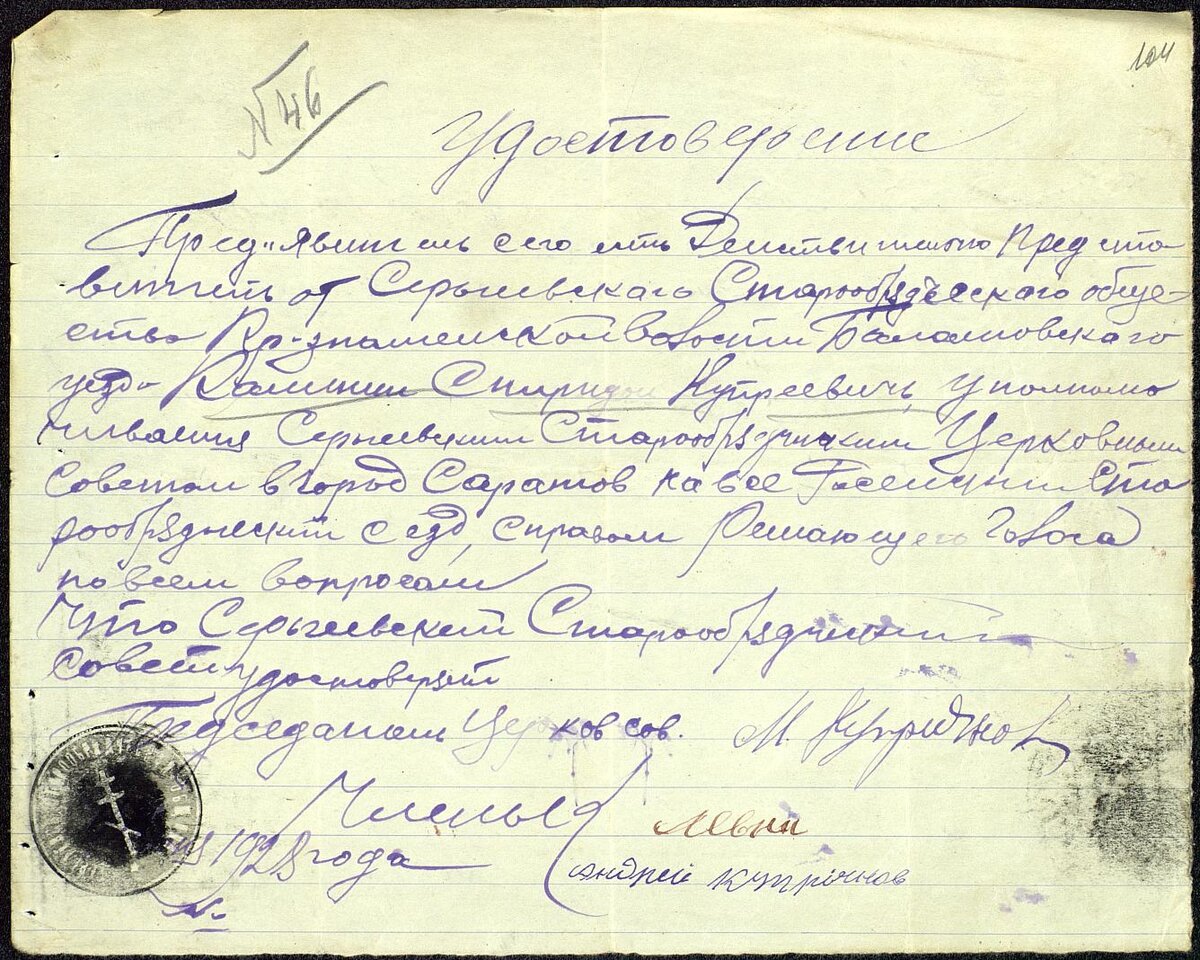 104
N 46
Удостоверение
Пред"явитель сего есть Действительно Предста
витель от Сергиевского Старообрядческого обще-
ства Кр-знаменской волости Балашовского
уезда Калинин Спиридон Купреевичь, уполномо
чивается Сергиевским Старообрядчиским Церковным
Советом в город Саратов на все Россейский Ста
рообрядческий с езд, справом Решающего Голоса
по всем вопросам
Что Сергиевский Старообрядчиский
совет удостоверят
Председатель Церков сов. М. Купричнов
Члены
Левин
1928 года
Андрей Купричнов
№